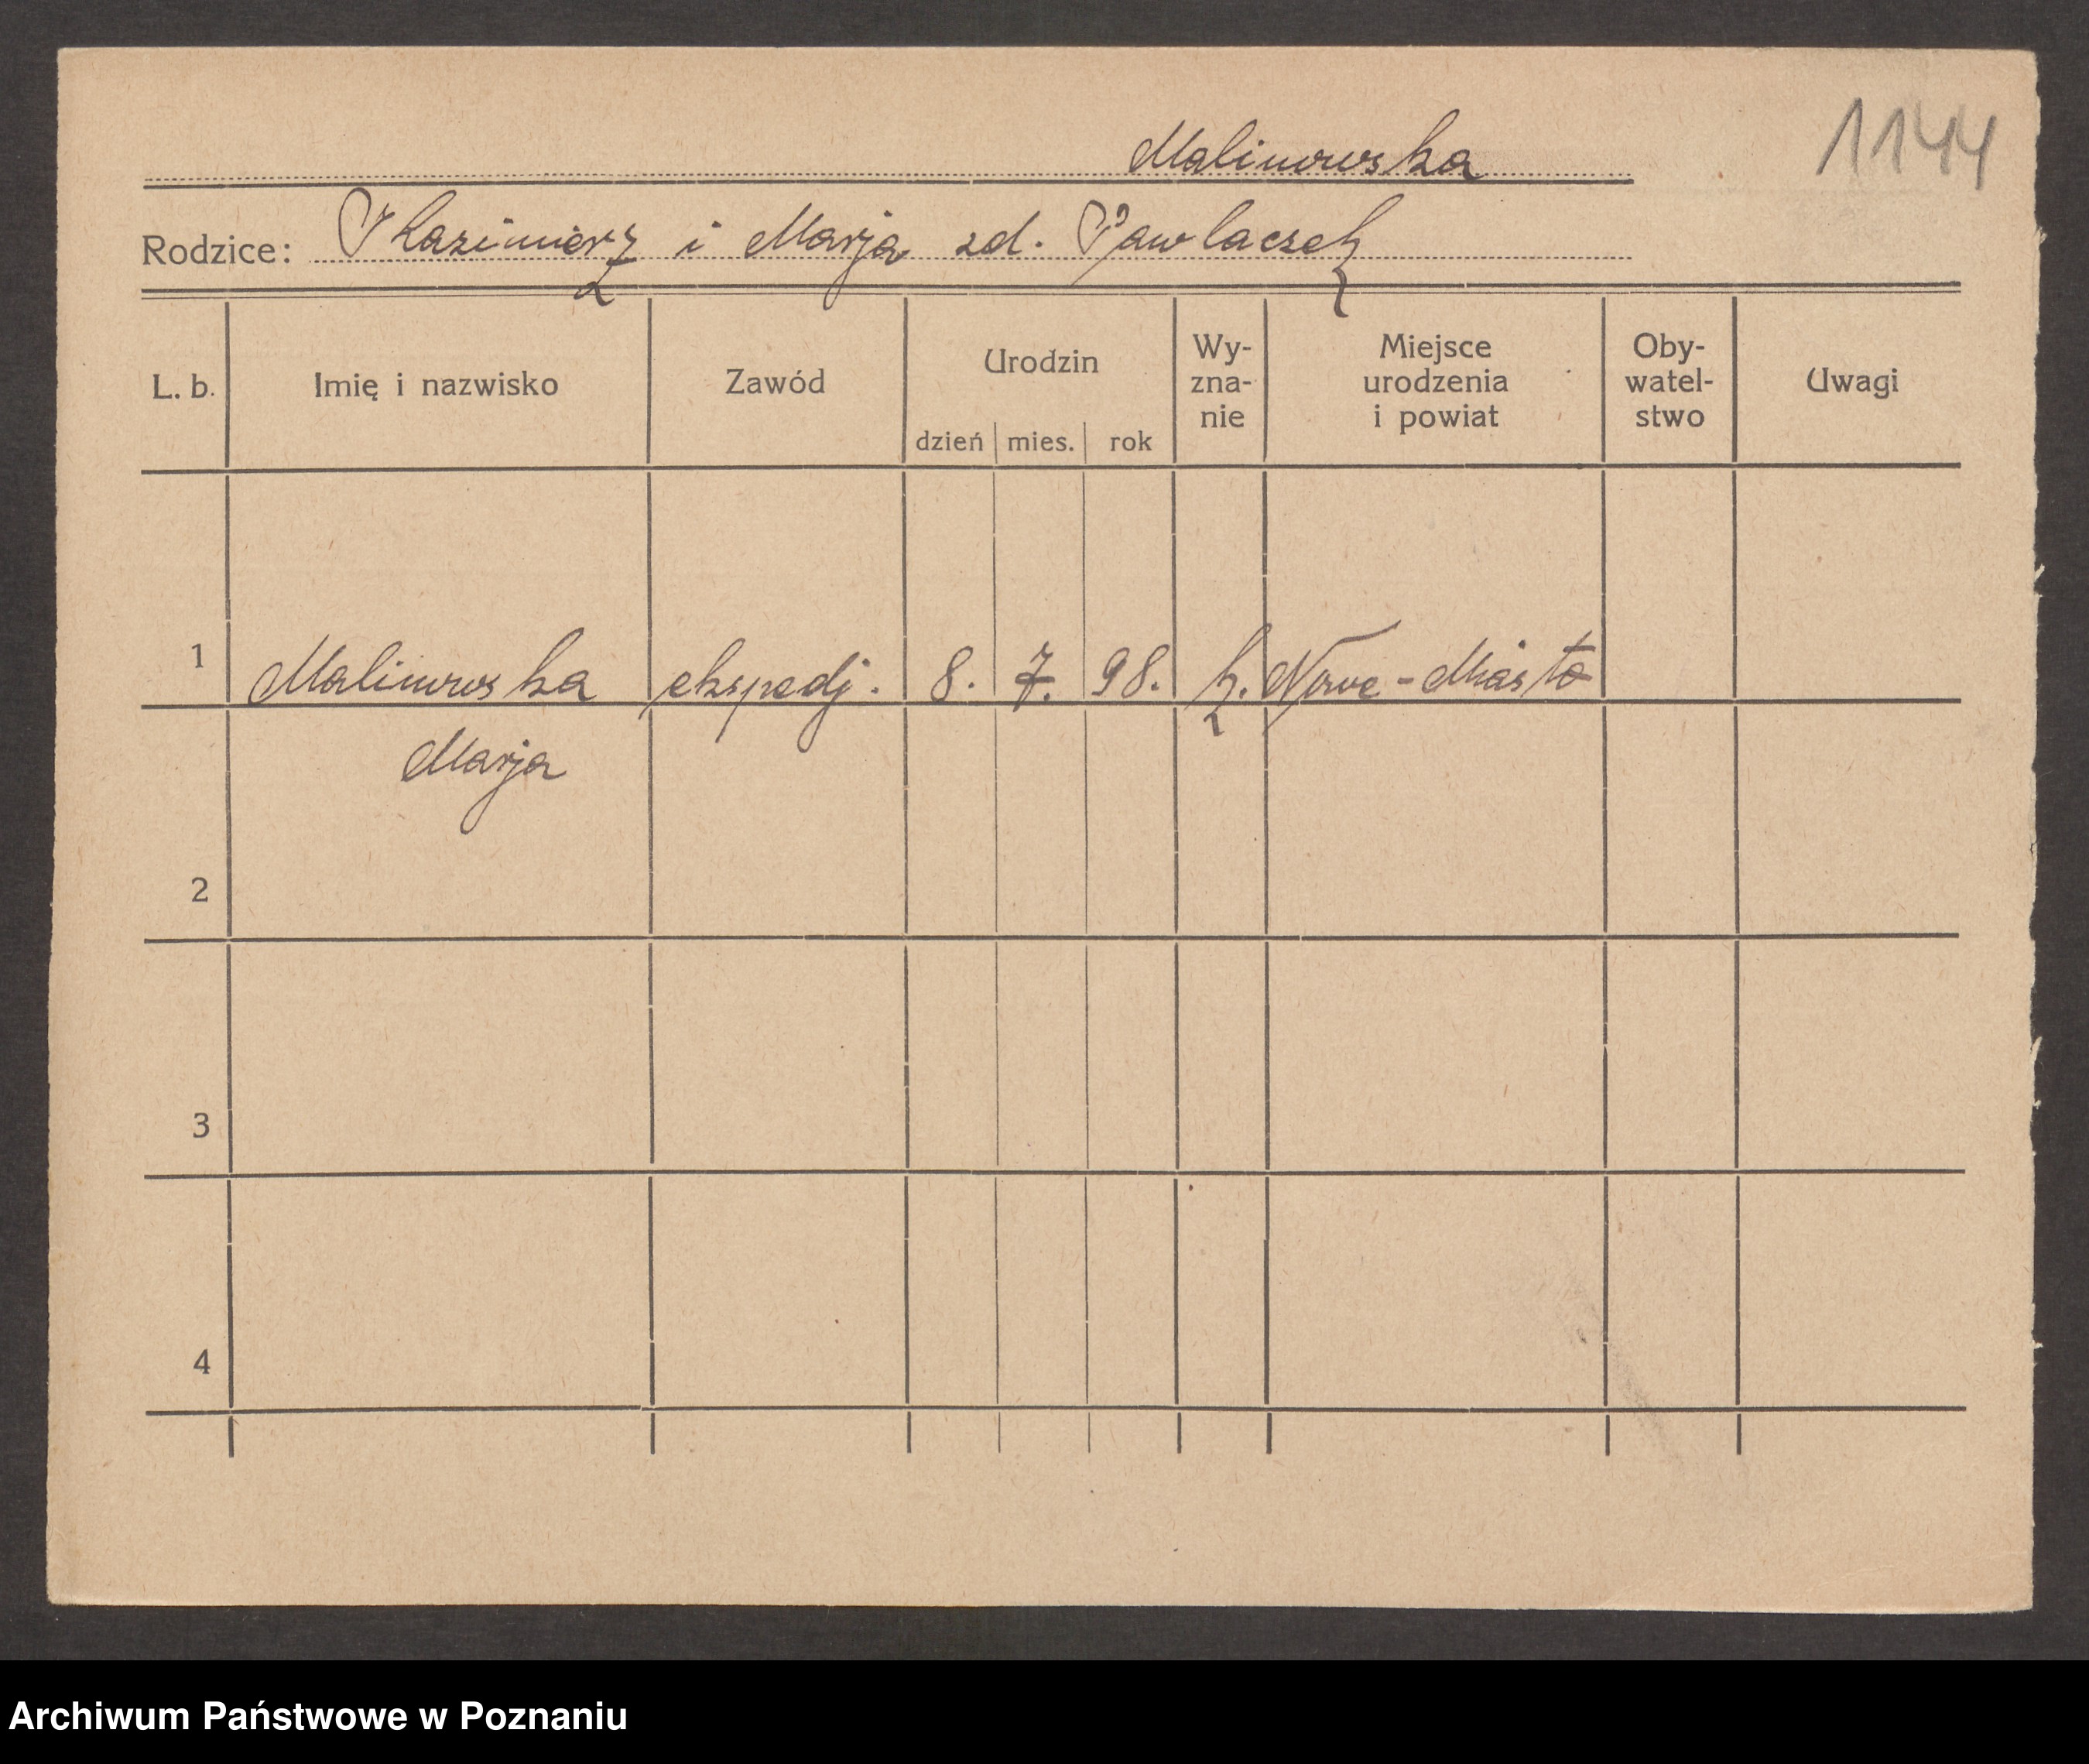 1144
Malinowska
Rodzice: Kazimierz i Marja zd. Pawlaczek
L. b. Imię i nazwisko Zawód Urodzin dzień mies. rok Wy-zna-nie Miejsce urodzenia i powiat Oby-watel-stwo Uwagi
1 Malinowska ekspedj. 8. 7. 98. k. Nowe-Miasto
Marja
2
3
4
Archiwum Państwowe w Poznaniu